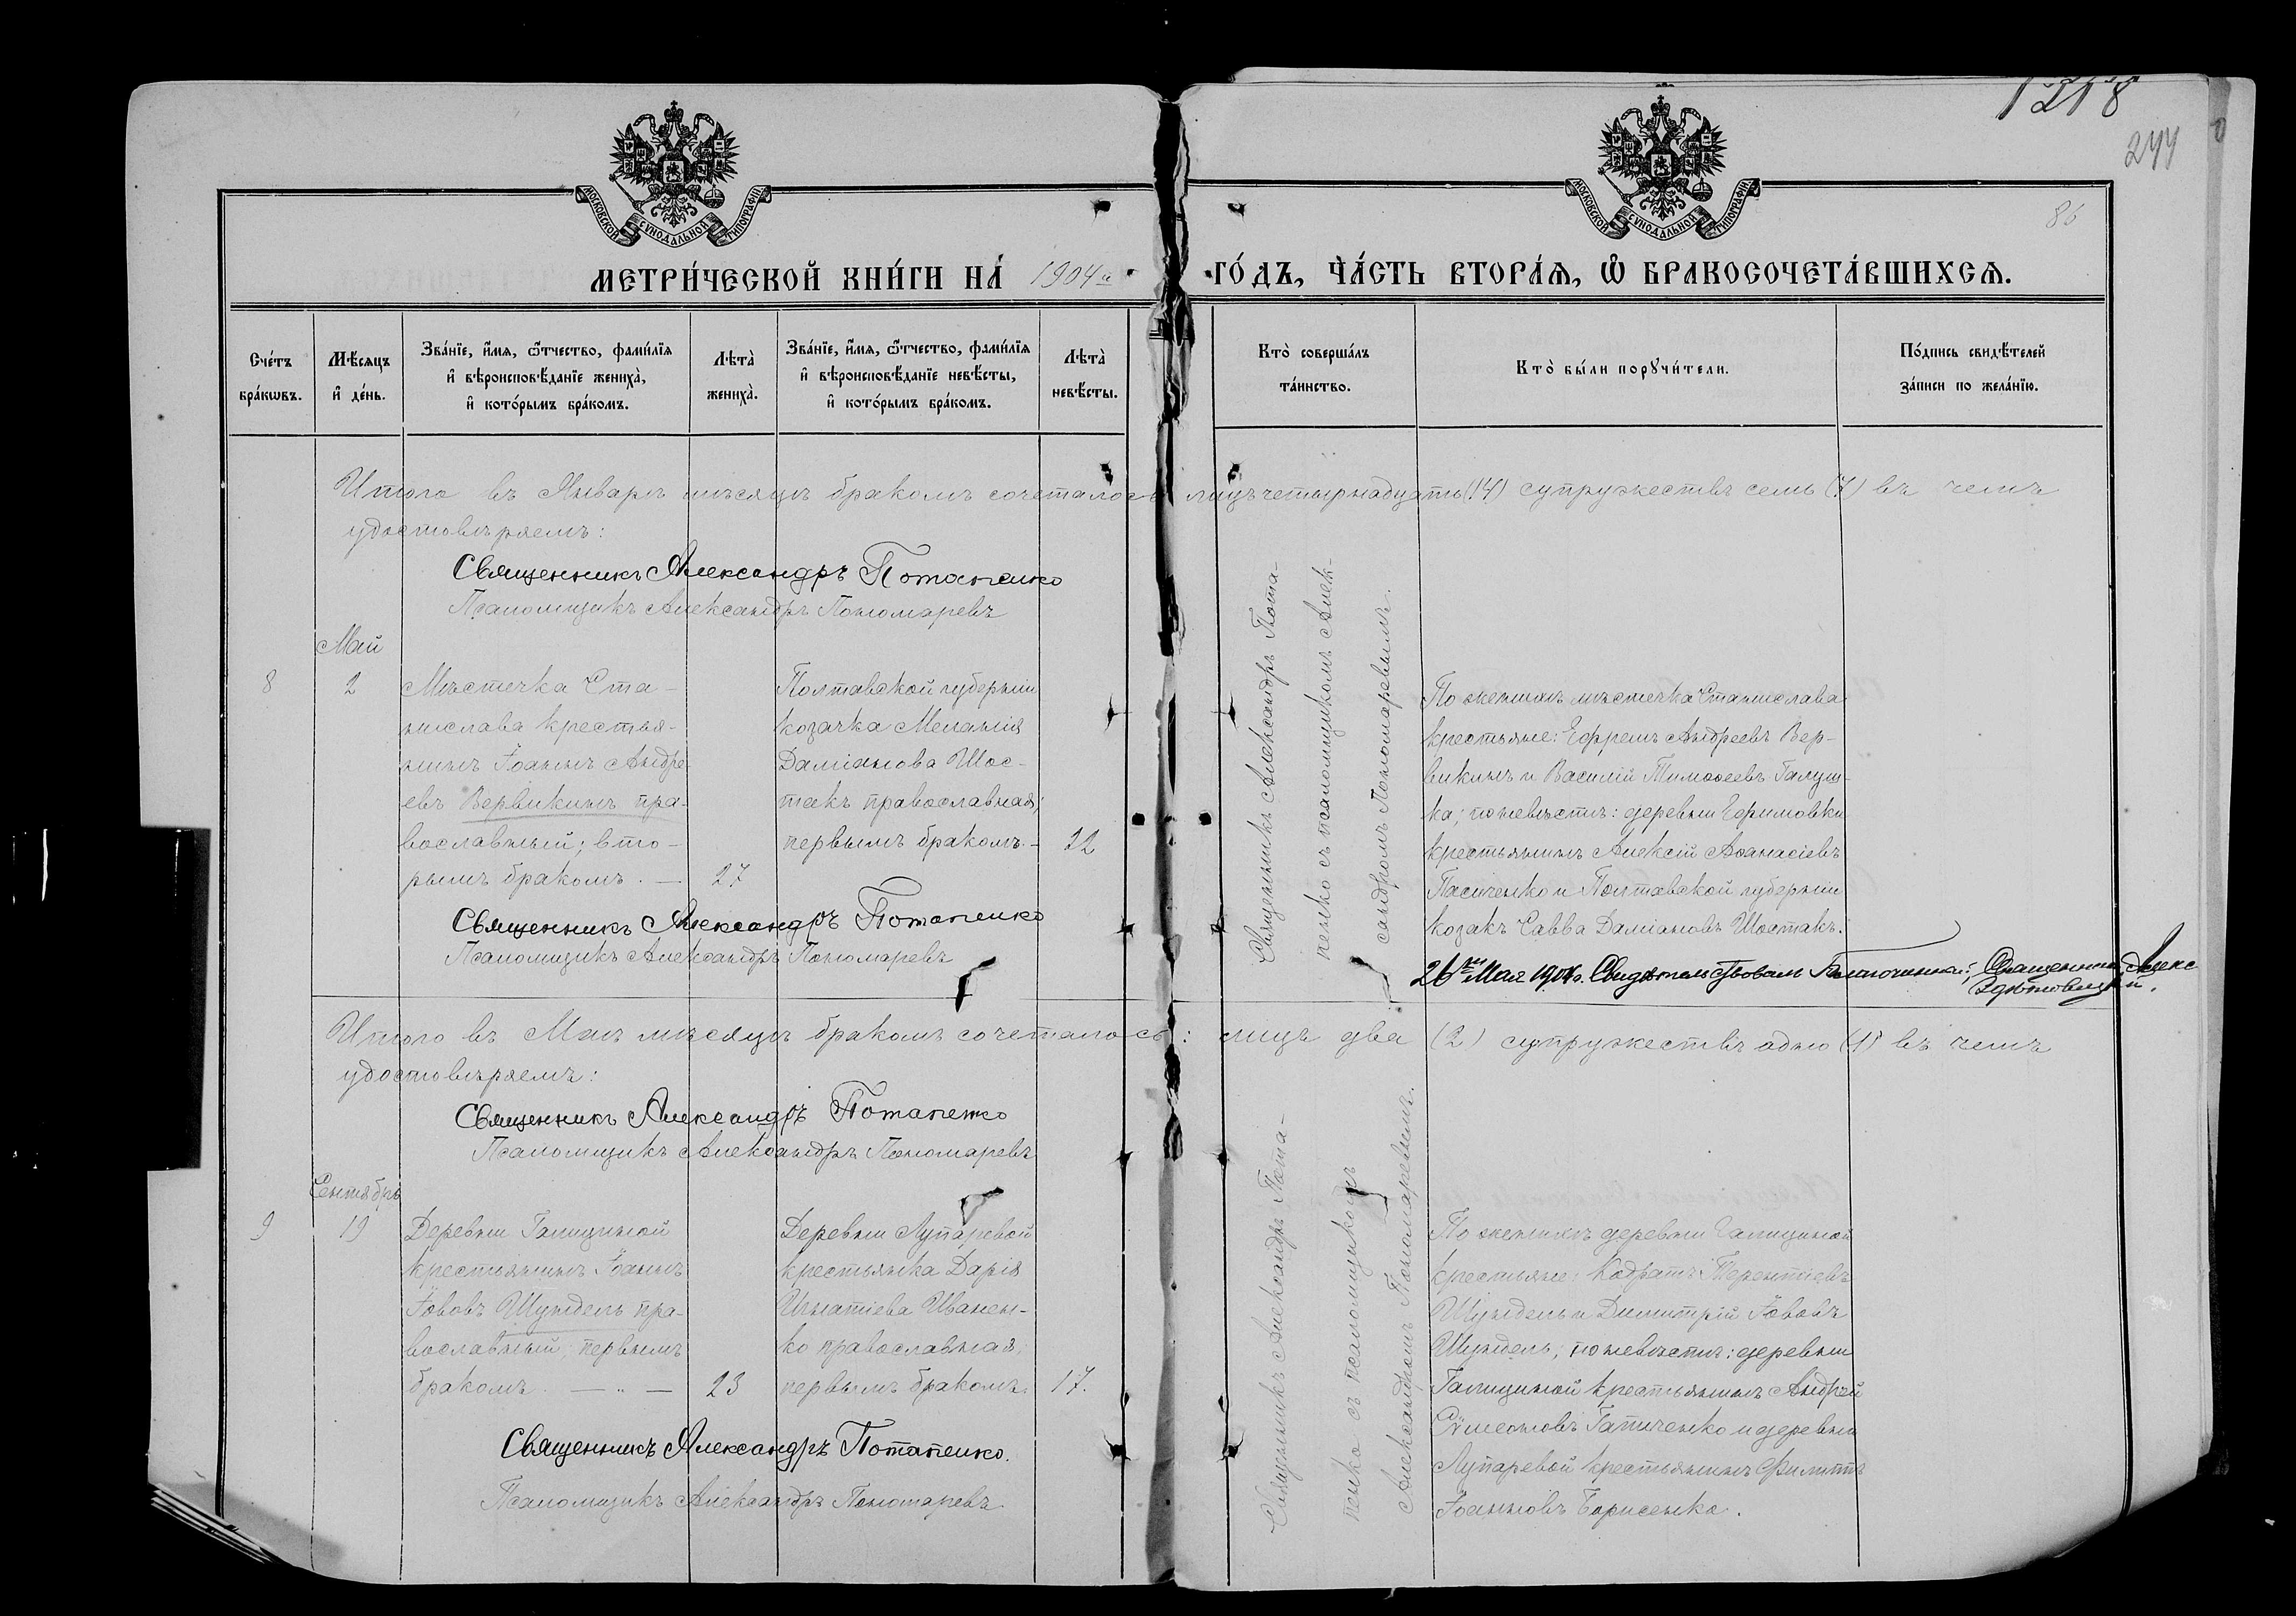 1218
244
86
МОСКОВСКОЙ СѴНОДАЛЬНОЙ ТИПОГРАФІИ
МОСКОВСКОЙ СѴНОДАЛЬНОЙ ТИПОГРАФІИ
МЕТРИ́ЧЕСКОЙ КНИ́ГИ НА́ 1904й ГО́ДЪ, ЧА́СТЬ ВТОРА́Я, Ѽ БРАКОСОЧЕТА́ВШИХСЯ.
Сче́тъ
бра́кѡвъ.
Мѣ́сяцъ
и҆ де́нь.
Зва́нїе, и҆́мя, ѻ҆́тчество, фами́лїя
и҆ вѣроисповѣ́данїе жениха̀,
и҆ кото́рымъ бра́комъ.
Лѣта̀
жениха̀.
Зва́нїе, и҆́мя, ѻ҆́тчество, фами́лїя
и҆ вѣроисповѣ́данїе невѣ́сты,
и҆ кото́рымъ бра́комъ.
Лѣта̀
невѣ́сты.
Кто̀ соверша́лъ
та́инство.
Кто̀ бы́ли порꙋчи́тели.
По́дпись свидѣ́телей
за́писи по жела́нїю.
Итого въ Январѣ мѣсяцѣ бракомъ сочеталось лицъ четырнадцать (14) супружествъ семь (7) въ чемъ
удостовѣряемъ:
Священникъ Александръ Потапенко
Псаломщикъ Александръ Пономаревъ
Май
8
2
Мѣстечка Ста-
нислава крестья-
нинъ Іоаннъ Андре-
евъ Вервикинъ пра-
вославный; вто-
рымъ бракомъ. —
27
Полтавской губерніи
козачка Меланія
Даміанова Шос-
такъ православная;
первымъ бракомъ. -
22
Священникъ Александръ Пота-
пенко съ псаломщикомъ Алек-
сандромъ Пономаревымъ.
По женихѣ мѣстечка Станислава
крестьяне: Ефремъ Андреевъ Вер-
викинъ и Василій Тимоѳеевъ Галуш-
ка; по невѣстѣ: деревни Ефимовки
крестьянинъ Алексій Аѳанасіевъ
Пасиченко и Полтавской губерніи
козакъ Савва Даміановъ Шостакъ.
Священникъ Александръ Потапенко
Псаломщикъ Александръ Пономаревъ
26го Мая 1904 г. Свидѣтельствовалъ Благочинный, Священникъ Алекс
Итого въ Маѣ мѣсяцѣ бракомъ сочеталось: лицъ два (2) супружествъ одно (1) въ чемъ
удостовѣряемъ:
Священникъ Александръ Потапенко
Псаломщикъ Александръ Пономаревъ
Сентябрь
9
19
Деревни Галициной
крестьянинъ Іоаннъ
Іововъ Шундель пра-
вославный; первымъ
бракомъ. — „ —
23
Деревни Лупаревой
крестьянка Дарія
Игнатіева Иванен-
ко православная;
первымъ бракомъ.
17.
Священникъ Александръ Пота-
пенко съ псаломщикомъ
Александромъ Пономаревымъ.
По женихѣ деревни Галициной
крестьяне: Кодратъ Терентіевъ
Шундель и Димитрій Іововъ
Шундель; по невѣстѣ: деревни
Галициной крестьянинъ Андрей
Сѵмеоновъ Гапиченко и деревни
Лупаревой крестьянинъ Филиппъ
Іоанновъ Борисенко.
Священникъ Александръ Потапенко.
Псаломщикъ Александръ Пономаревъ